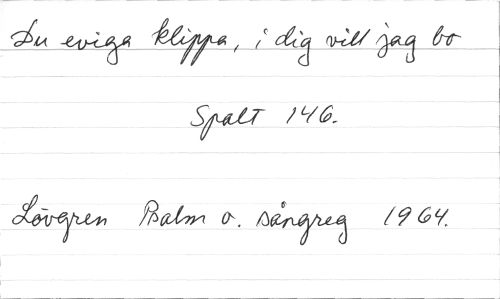 Du eviga klippa, i dig vill jag bo
Spalt 146.
Lövgren Psalm o. sångreg 1964.